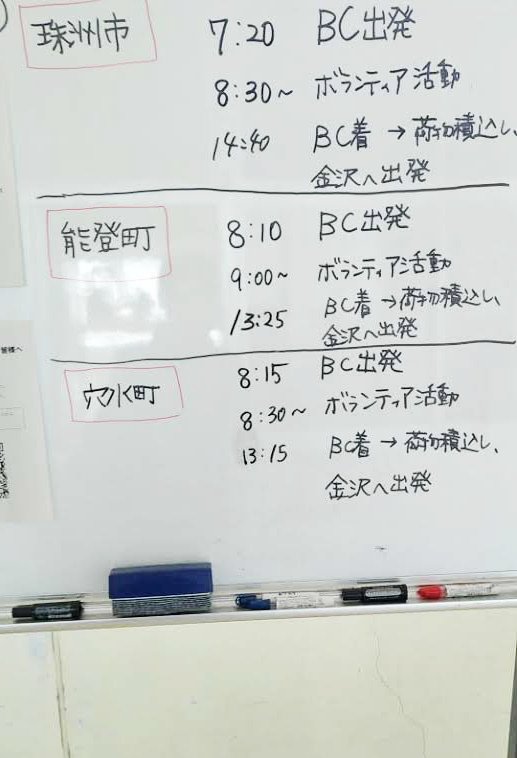 珠洲市 7:20 BC出発
8:30~ ボランティア活動
14:40 BC着 → 荷物積込し、
金沢へ出発
能登町 8:10 BC出発
9:00~ ボランティア活動
13:25 BC着 → 荷物積込し、
金沢へ出発
穴水町 8:15 BC出発
8:30~ ボランティア活動
13:15 BC着 → 荷物積込し、
金沢へ出発
皆様へ